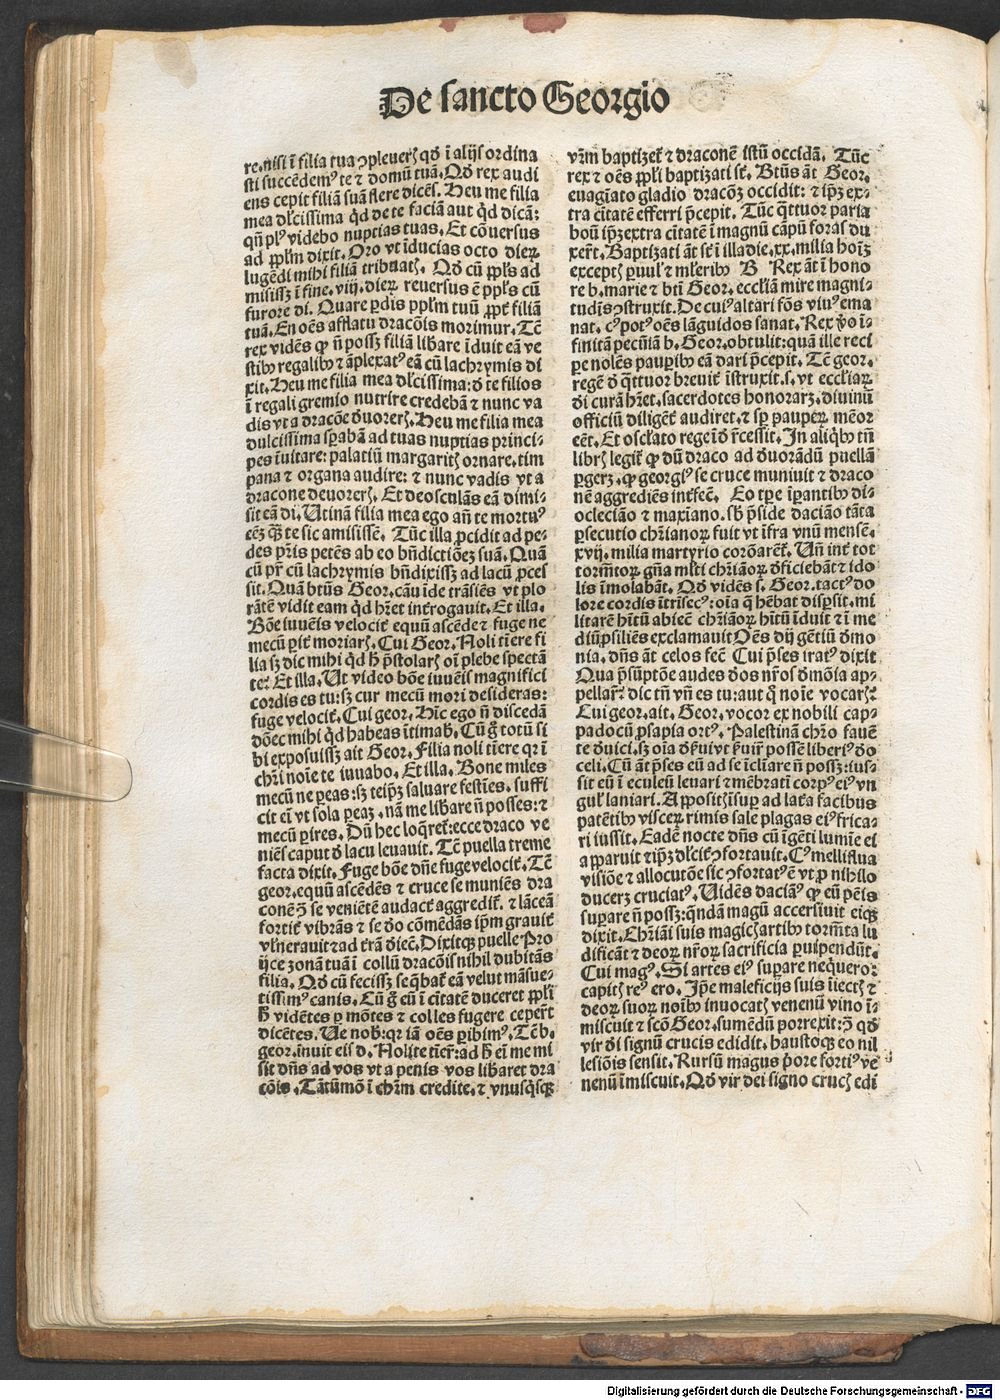 De sancto Georgio
re. nisi ī filia tua ꝯpleueris qd̓ ī alijs ordina
sti succēdemꝰ te ⁊ domū tuā. Qd̓ rex audi
ens cepit filiā suā flere dicēs. Heu me filia
mea dl̓cissima qd̓ de te faciā aut qd̓ dicā:
qn̄ plꝰ videbo nuptias tuas. Et cōuersus
ad ppl̓m dixit. Oro vt īducias octo dieꝝ
lugēdi mihi filiā tribuatis. Qd̓ cū ppl̓s ad
misissꝫ ī fine. viij. dieꝝ reuersus ē ppl̓s cū
furore di. Quare ꝑdis ppl̓m tuū ꝓpt̓ filiā
tuā. En oēs afflatu dracōis morimur. Tūc
rex vidēs ꝙ n̄ possꝫ filiā libare īduit eā ve
stibꝰ regalibꝰ ⁊ āplexatꝰ eā cū lachrymis di
xit. Heu me filia mea dl̓cissima: d̓ te filios
ī regali gremio nutrire credebā ⁊ nunc va
dis vt a dracōe d̓uoreris. Heu me filia mea
dulcissima sꝑabā ad tuas nuptias princi-
pes īuitare: palatiū margaritis ornare. tim
pana ⁊ organa audire: ⁊ nunc vadis vt a
dracone deuoreris. Et deosculās eā dimi-
sit eā di. Utinā filia mea ego an̄ te mortuꝰ
eēꝫ qꝫ te sic amisissē. Tūc illa ꝓcidit ad pe-
des pr̄is petēs ab eo bn̄dictiōeꝫ suā. Quā
cū pr̄ cū lachrymis bn̄dixissꝫ ad lacū ꝓces
sit. Quā btūs Geor. cāu īde trāsiēs vt plo
rātē vidit eam qd̓ hr̄et int̓rogauit. Et illa.
Bōe iuuēis velocit̓ equū ascēde ⁊ fuge ne
mecū pit̓ moriaris. Cui Geor. Noli tīere fi
lia sꝫ dic mihi qd̓ h̄ p̄stolaris oī plebe spectā
te. Et illa. Ut video bōe iuuēis magnifici
cordis es tu: sꝫ cur mecū mori desideras:
fuge velocit̓. Cui geor. Hīc ego n̄ discedā
dōec mihi qd̓ habeas ītimab̓. Cū g̊ totū si
bi exposuissꝫ ait Geor. Filia noli tīere qr ī
chr̄i noīe te iuuabo. Et illa. Bone miles
mecū ne ꝑeas: sꝫ teip̄ꝫ saluare festīes. suffi
cit eī vt sola ꝑeaꝫ. nā me libare n̄ posses: ⁊
mecū ꝑires. Dū hec loq̄ret̓: ecce draco ve
niēs caput d̓ lacu leuauit. Tūc puella treme
facta dixit. Fuge bōe dn̄e fuge velocit̓. Tūc
geor. equū ascēdēs ⁊ cruce se muniēs dra
conē ꝯ̄ se veniētē audact̓ aggredit̓. ⁊ lāceā
fortit̓ vibrās ⁊ se d̓o cōmēdās ip̄m grauit̓
vl̓nerauit ⁊ ad t̓rā d̓iec̄. Dixitqꝫ puelle Pro
ijce zonā tuā ī collū dracōis nihil dubitās
filia. Qd̓ cū fecissꝫ seq̄bat̓ eā velut māsue-
tissimꝰ canis. Cū g̊ eū ī ciuitatē duceret ppl̓i
h̄ vidētes ꝑ mōtes ⁊ colles fugere ceperūt
dicētes. Ue nob̓: qr iā oēs ꝑibimꝰ. Tūc b.
geor. inuit eis d. Nolite tīer̄: ad h̄ eī me mi
sit dn̄s ad vos vt a penis vos libaret dra
cōis. Tātūmō ī chr̄m credite. ⁊ vnusq̓sqꝫ
vr̄m baptizet̓ ⁊ draconē istū occidā. Tūc
rex ⁊ oēs ppl̓i baptizati st̄. Btūs āt Geor.
euagīato gladio dracōꝫ occidit: ⁊ ip̄ꝫ ex-
tra ciuitatē efferri p̄cepit. Tūc q̄ttuor paria
boū ip̄ꝫ extra ciuitatē ī magnū cāpū foras du
xerūt. Baptizati āt st̄ ī illa die. xx. milia hoīꝫ
exceptis ꝑuul̓ ⁊ ml̓ieribꝰ B Rex āt ī hono
re b. marie ⁊ bti Geor. eccl̓iā mire magni-
tudīs ꝯstruxit. De cuiꝰ altari fōs viuꝰ ema
nat. cꝰ potꝰ oēs lāguidos sanat. Rex v̓o ī-
finitā pecūiā b. Geor. obtulit: quā ille reci
pe nolēs pauꝑibꝰ eā dari p̄cepit. Tūc geor.
regē d̓ q̄ttuor breuit̓ īstruxit. s. vt eccl̓iaꝝ
d̓i curā hr̄et. sacerdotes honoraret. diuinū
officiū diligēt̓ audiret. ⁊ sꝑ pauꝑeꝝ mēor
eēt. Et oscl̓ato rege īd̓ recessit. In aliq̓bꝰ tn̄
libris legit̓ ꝙ dū draco ad d̓uorādū puellā
ꝑgeret. ꝙ georgiꝰ se cruce muniuit ⁊ draco
nē aggrediēs int̓fec̄. Eo tꝑe īꝑantibꝰ di-
ocleciāo ⁊ maxīano. sb̓ p̄side daciāo tāta
ꝑsecutio chr̄ianoꝝ fuit vt īfra vnū mensē.
xvij. milia martyrio corōarent̓. Un̄ int̓ tot
tormētoꝝ gn̄a ml̓ti chr̄iāoꝝ d̓ficiebāt ⁊ ido
lis īmolabāt. Qd̓ vidēs s. Geor. tactꝰ do
lore cordis ītrīsecꝰ: oīa q̄ hēbat disꝑsit. mi
litarē hītū abiec̄ chr̄iāoꝝ hītū īduit ⁊ ī me
diū ꝓsiliēs exclamauit Oēs dij gētiū d̓mo
nia. dn̄s āt celos fec̄ Cui p̄ses iratꝰ dixit
Qua p̄sūptōe audes d̓os nr̄os d̓mōia ap-
pellar̄: dic tn̄ vn̄ es tu: aut q̊ noīe vocaris:
Cui geor. ait. Geor. vocor ex nobili cap-
padocū ꝓsapia ortꝰ. Palestinā chr̄o fauē
te d̓uici. sꝫ oīa d̓serui vt s̓uir̄ possē liberiꝰ d̓o
celi. Cū āt p̄ses eū ad se īcliare n̄ possꝫ: ius-
sit eū ī eculeū leuari ⁊ mēbratī corpꝰ eiꝰ vn
gul̓ laniari. Appositis īsuꝑ ad lat̓a facibus
patētibꝰ visceꝝ rimis sale plagas eiꝰ frica-
ri iussit. Eadē nocte dn̄s cū īgēti lumīe ei
apparuit ⁊ ip̄ꝫ dl̓cit̓ ꝯfortauit. Cꝰ melliflua
visiōe ⁊ allocutōe sic ꝯfortatꝰ ē vt ꝓ nihilo
duceret cruciatꝰ. Uidēs daciāꝰ ꝙ eū pēis
suꝑare n̄ possꝫ: quendā magū accersiuit eiqꝫ
dixit. Chr̄iāi suis magicis artibꝰ tormēta lu
dificāt ⁊ deoꝝ nr̄oꝝ sacrificia ꝑuipendūt.
Cui magꝰ. Si artes eiꝰ suꝑare neq̄uero:
capitis reꝰ ero. Ip̄e maleficijs suis īiectis ⁊
deoꝝ suoꝝ noībꝰ inuocatis venenū vino ī-
miscuit ⁊ scō Geor. sumēdū porrexit: ꝯ̄ qd̓
vir d̓i signū crucis edidit. haustoqꝫ eo nil
lesiōis sensit. Rursū magus p̓ore fortiꝰ ve
nenū īmiscuit. Qd̓ vir dei signo crucis edi
Digitalisierung gefördert durch die Deutsche Forschungsgemeinschaft - DFG